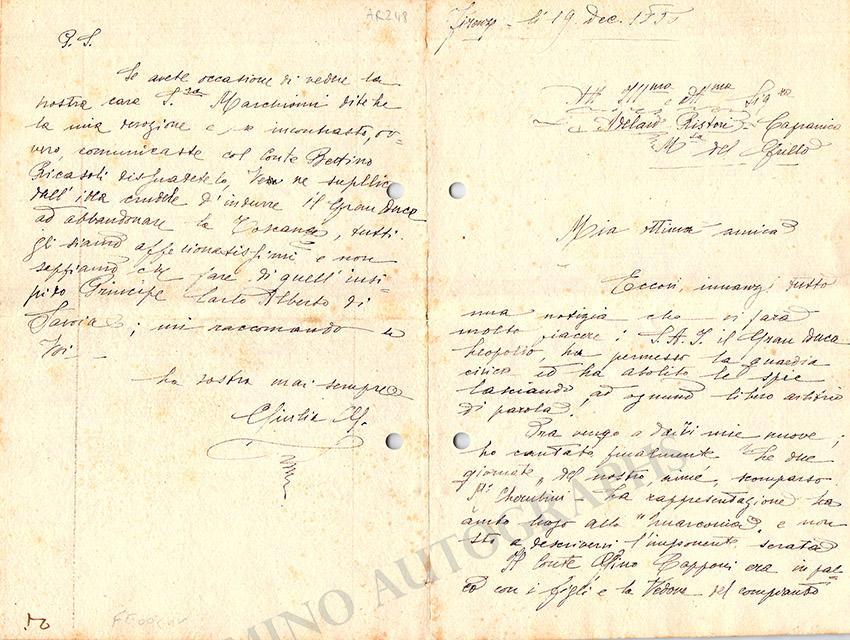 AR248
P. S.
Se avete occasione di vedere la
nostra cara S.ra Marchionni ditele
la mia devozione e incontrasto, ov-
vero, comunicasse col Conte Bettino
Ricasoli disfuadetelo, Ve ne supplico
dall'idea crudele d'indurre il Gran Duca
ad abbandonare la Toscana, tutti
gli siamo affezionatissimi e non
sappiamo che fare di quell'insi-
pido Principe Carlo Alberto di
Savoia; mi raccomando a
Voi
la vostra mai sempre
Giulia
Firenze - li 19. dec.
All' Ill.ma e Sig.ra
Adelaide Ristori - Capranica
M. del Grillo
Mia ottima amica
Eccovi, innanzi tutto
una notizia che vi farà
molto piacere: S.A.I. il Gran Duca
Leopoldo, ha permesso la guardia
civica ed ha abolito le spie
lasciando, ad ognuno libero arbitrio
di parola.
Ora vengo a darvi mie nuove;
ho cantato finalmente "Le due
giornate" del nostro, aimé, scomparso
M.o Cherubini - La rappresentazione ha
avuto luogo alla e non
sto a descrivervi l'imponente serata
Il Conte Gino Capponi era in pal-
co con i figli e la Vedova del compianto
TAMINO AUTOGRAPHS